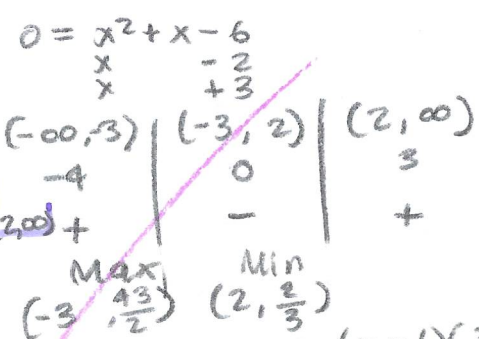 0 = x² + x - 6
x - 2
x + 3
(-∞,-3) | (-3, 2) | (2, ∞)
-4 0 3
2,∞) + - +
Max Min
(-3, 43/2) (2, 2/3)